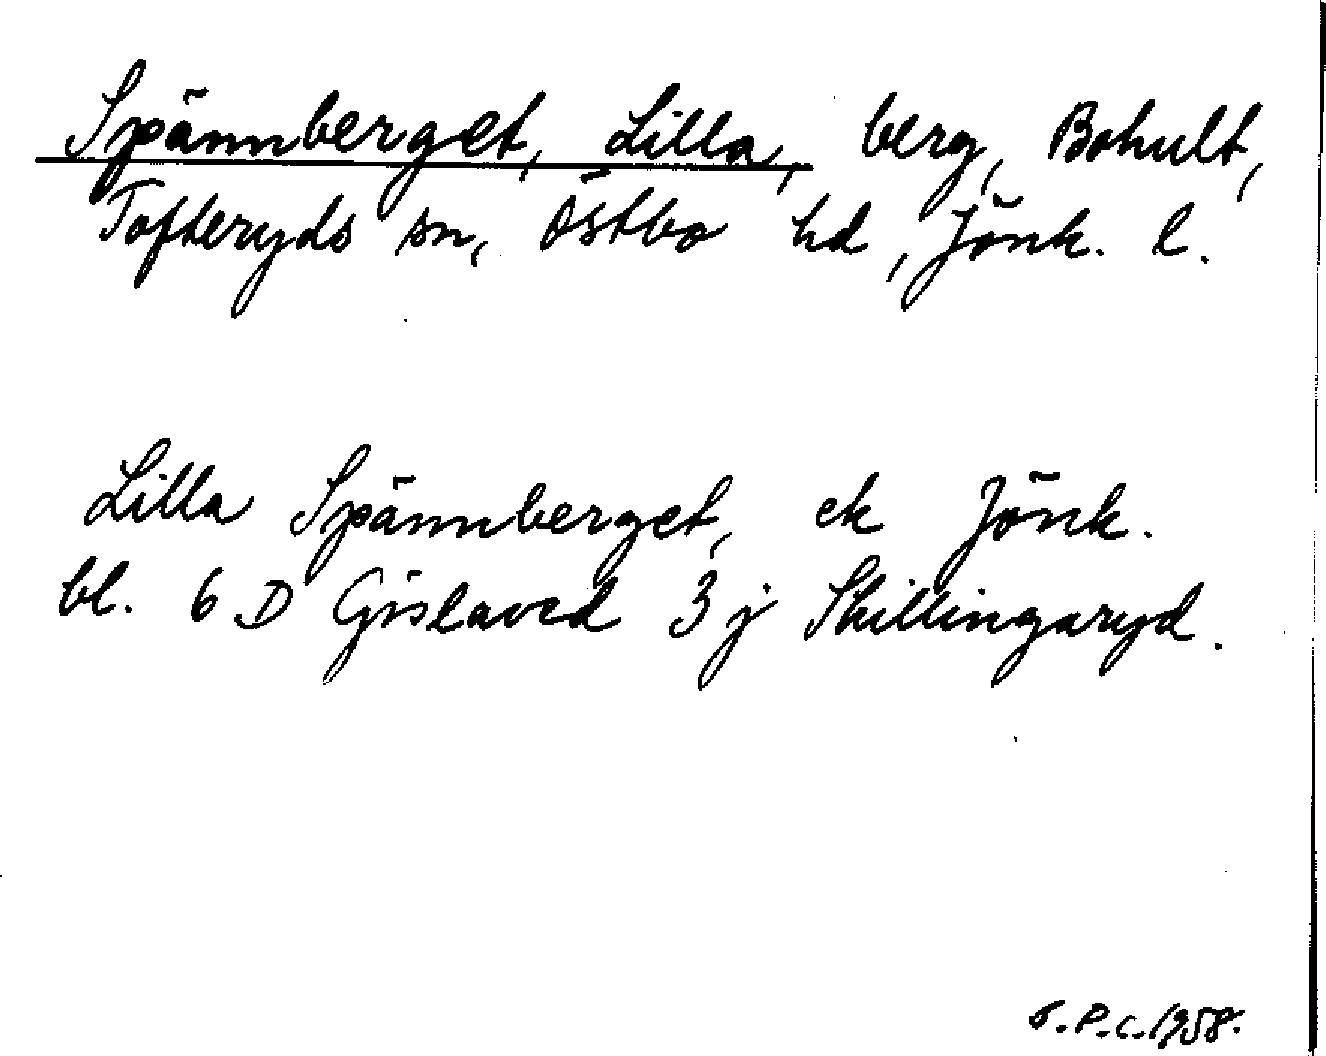 Spännberget, Lilla, berg, Bohult,
Tofteryds sn, Östbo hd, Jönk. l.
Lilla Spännberget, ek Jönk.
bl. 6 D Gislaved 3 j Skillingaryd.
S.P.C. 1958.